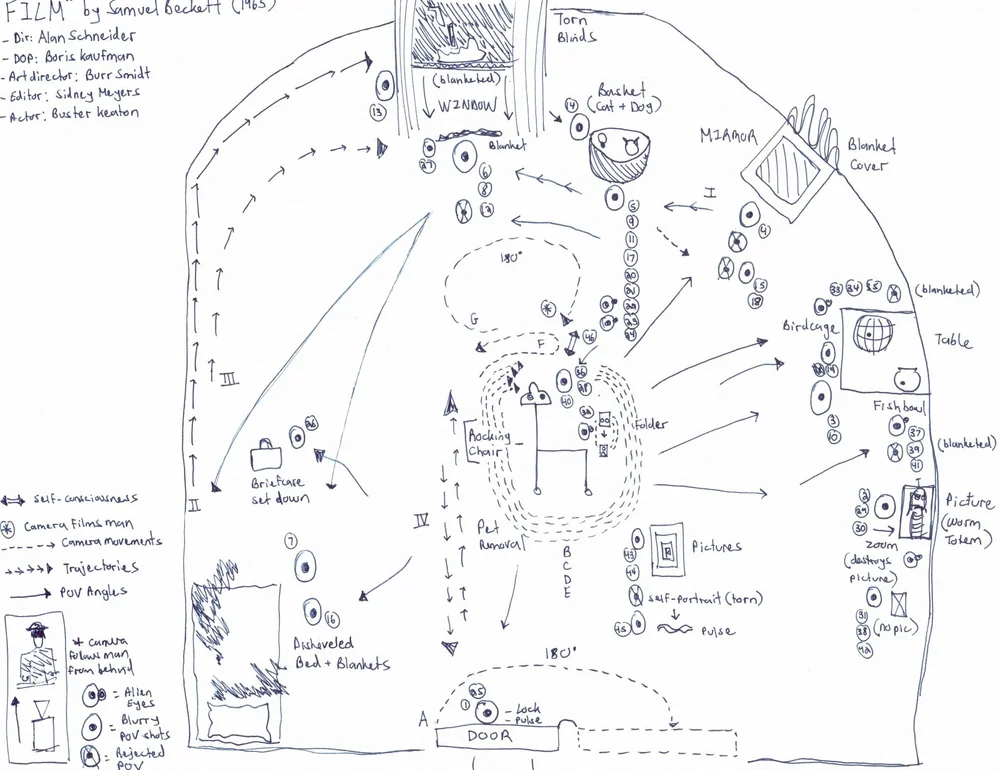 FILM" by Samuel Beckett (1965)
- Dir: Alan Schneider
- DOP: Boris Kaufman
- Art director: Burr Smidt
- Editor: Sidney Meyers
- Actor: Buster Keaton
Torn
Blinds
(blanketed)
WINDOW
Blanket
Basket
(Cat + Dog)
14
13
27
6
8
12
MIRROR
Blanket
Cover
I
5
9
11
17
4
15
18
180°
G
F
46
33 34
(blanketed)
Birdcage
Table
Fishbowl
3
10
37
39
41
(blanketed)
Rocking
Chair
Folder
40
III
II
IV
26
Briefcase
set down
Pet
Removal
B
C
D
E
Picture
(Worm
Totem)
30
zoom
(destroys
picture)
(no pic)
31
38
42
Pictures
43
44
self-portrait (torn)
45
pulse
7
16
Disheveled
Bed + Blankets
180°
A
25
1
- Lock
- pulse
DOOR
self-consciousness
Camera Films man
Camera movements
Trajectories
POV Angles
* camera
follows man
from behind
= Alien
Eyes
= Blurry
POV shots
= Rejected
POV